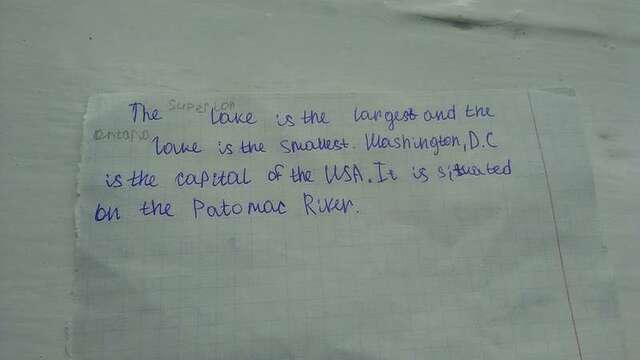 The Superior lake is the largest and the
Ontario lake is the smallest. Washington, D.C
is the capital of the USA. It is situated
on the Patomac River.